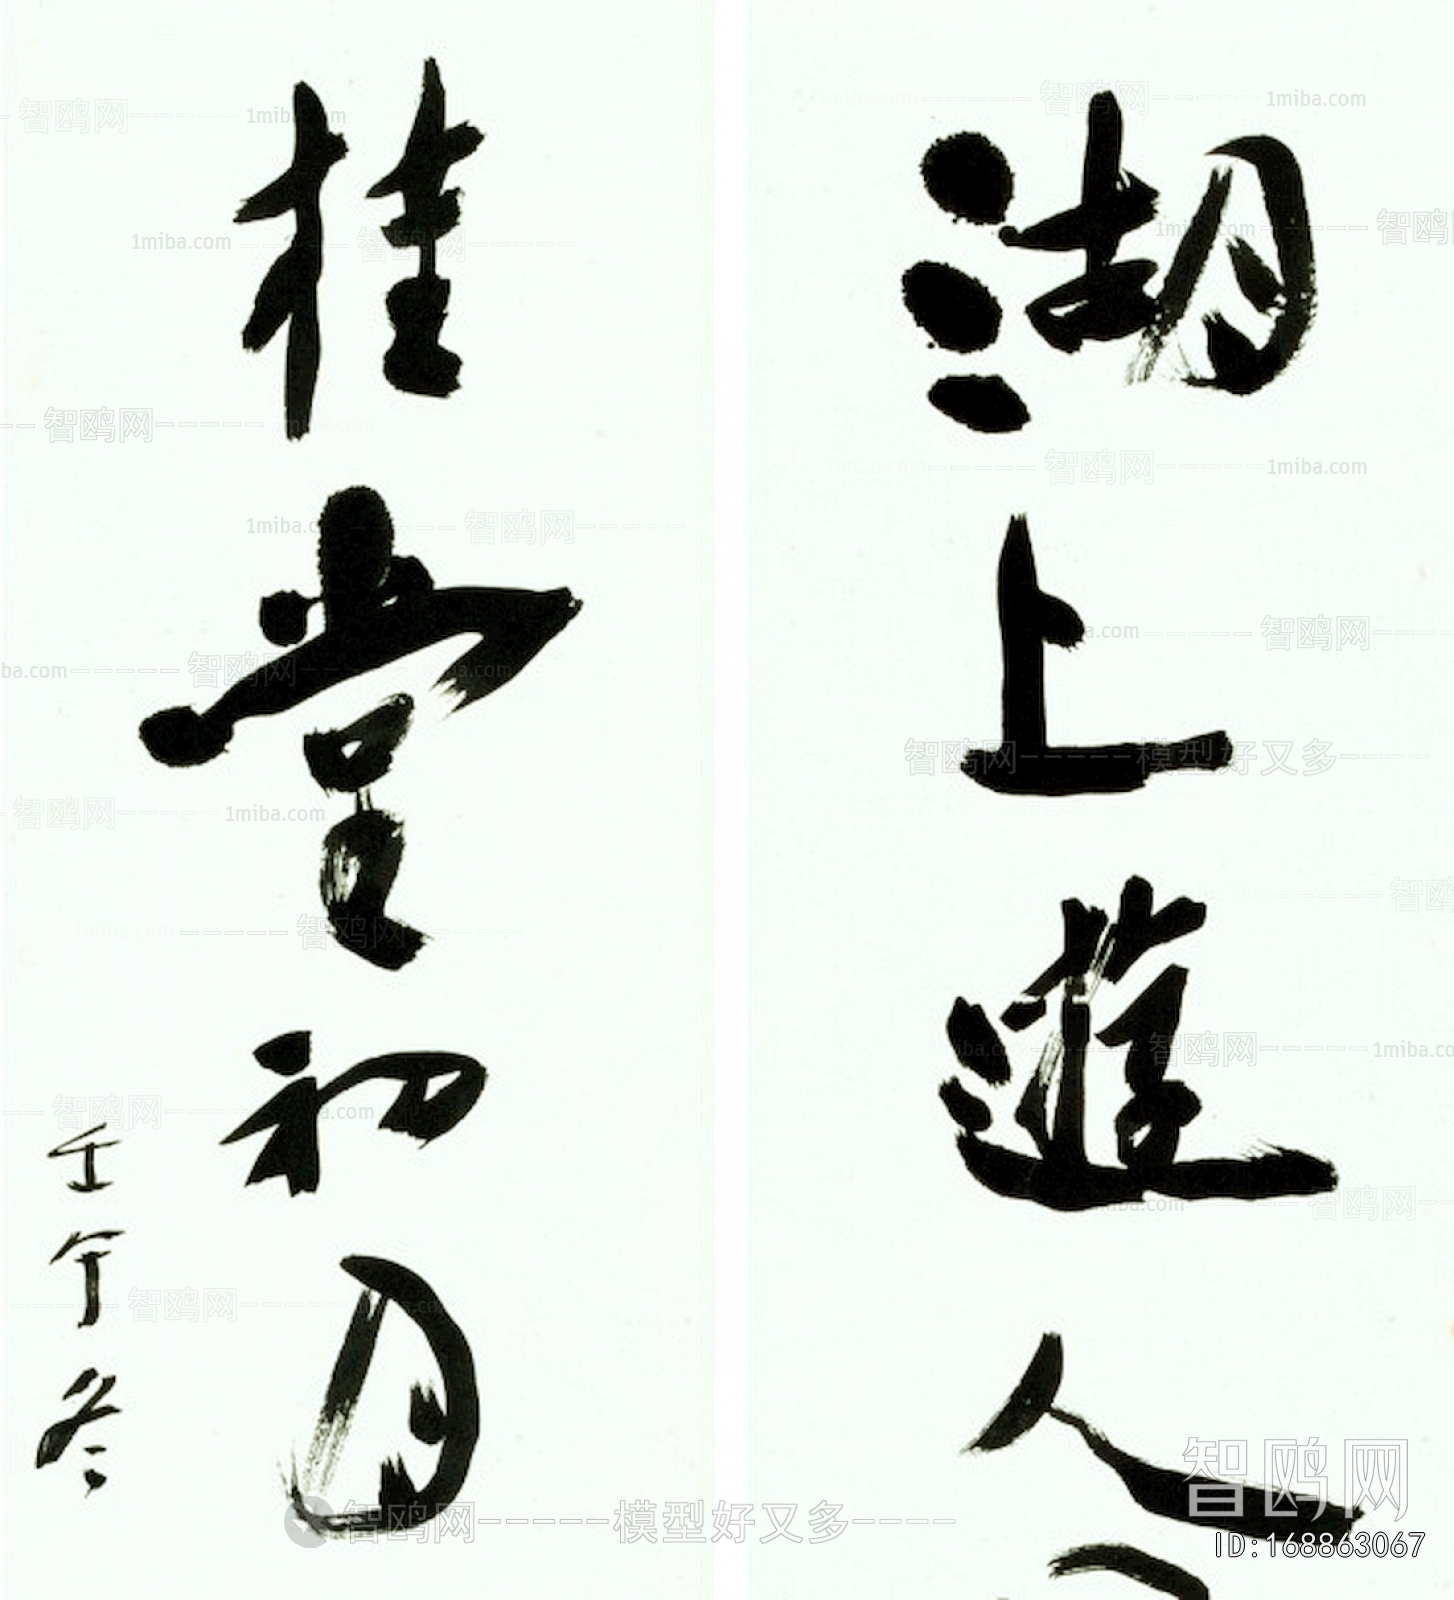 湖上進人
桂堂初月
壬午冬
智鸥网
1miba.com
模型好又多
ID:168863067